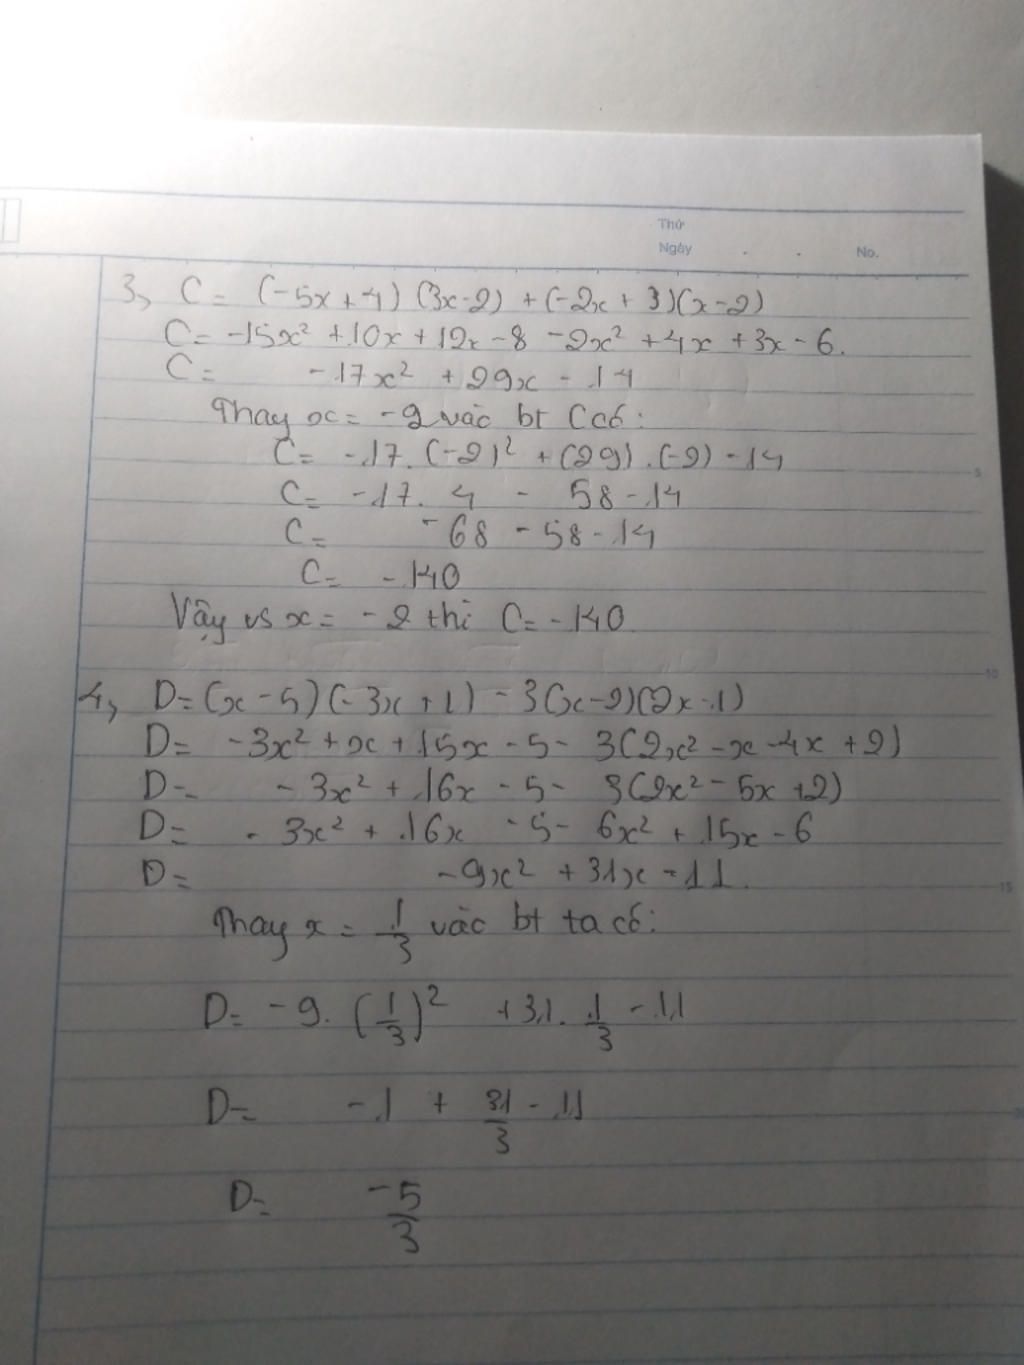 Thứ
Ngày . . No.
3, C = (-5x + 4) (3x - 2) + (-2x + 3)(x - 2)
C = -15x² + 10x + 12x - 8 - 2x² + 4x + 3x - 6.
C = -17x² + 29x - 14
Thay x = -2 vào bt C có:
C = -17. (-2)² + (29) . (-2) - 14
C = -17. 4 - 58 - 14
C = -68 - 58 - 14
C = -140
Vậy vs x = -2 thì C = -140
4, D = (x - 5) (-3x + 1) - 3(x - 2)(2x - 1)
D = -3x² + x + 15x - 5 - 3(2x² - x - 4x + 2)
D = -3x² + 16x - 5 - 3(2x² - 5x + 2)
D = -3x² + 16x - 5 - 6x² + 15x - 6
D = -9x² + 31x - 11.
Thay x = 1/3 vào bt ta có:
D = -9. (1/3)² + 31. 1/3 - 11
D = -1 + 31/3 - 11
D = -5/3
5
10
15